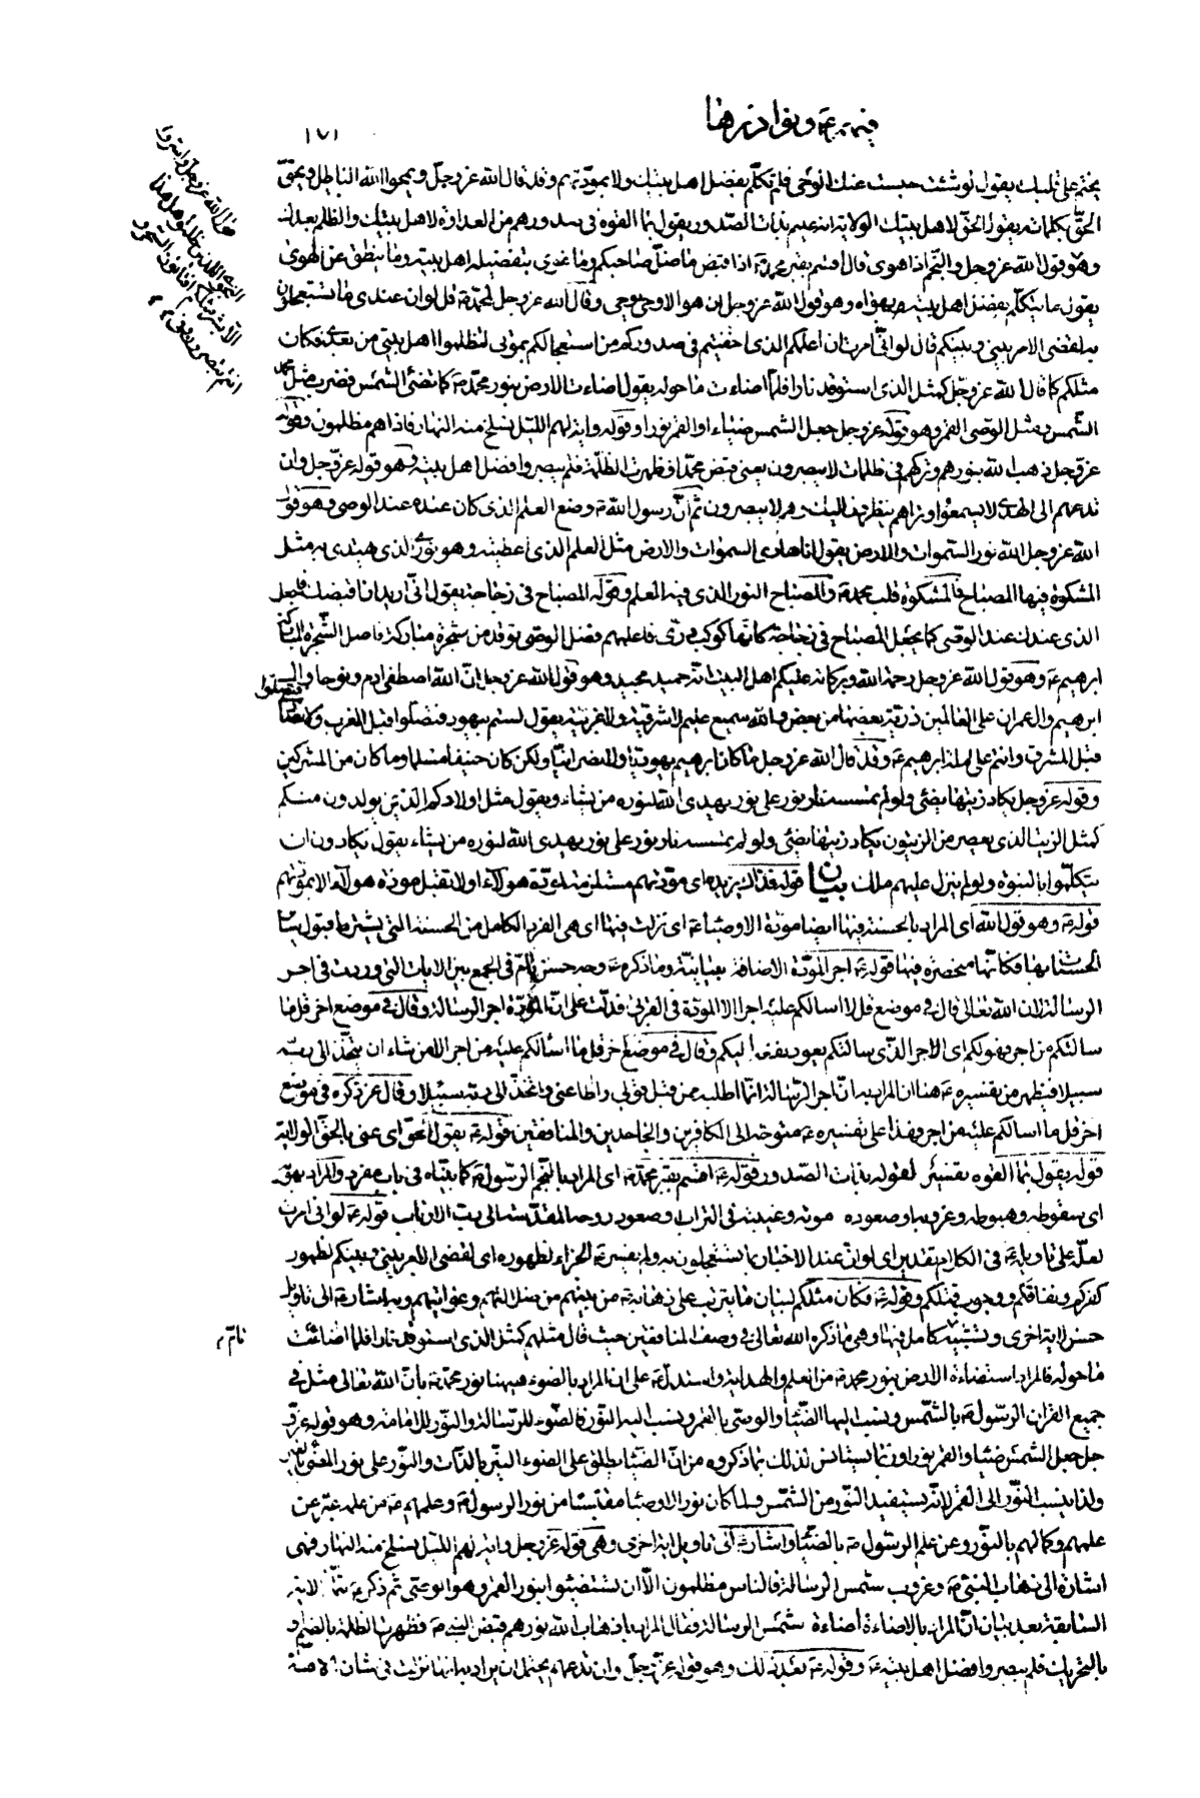 فيهم ع و نوادرها
١٧١
يختم على قلبك يقول لو شئت حبست عنك الوحى فلم تكلّم بفضل اهل بيتك ولا بمودّتهم وقد قال الله عز وجلّ ويمحوا الله الباطل ويحقّ
الحقّ بكلماته يقول الحقّ لاهل بيتك الولاية انه عليم بذات الصّدور يقول بما القوه فى صدورهم من العداوة لاهل بيتك والظلم بعدك
وهو قول الله عز وجل والنّجم اذا هوى قال اقسم بقبر محمد ص اذا قبض ما ضلّ صاحبكم وما غوى بتفضيله اهل بيته وما ينطق عن الهوى
يقول ما يتكلّم بفضل اهل بيته بهواه وهو قول الله عز وجل ان هو الا وحى يوحى وقال الله عز وجل لمحمد ص قل لو ان عندى ما تستعجلون
به لقضى الامر بينى وبينكم قال لو انّى امرت ان اعلمكم الذى اخفيتم فى صدوركم من استعجالكم بموتى لتظلموا اهل بيتى من بعدى فكان
مثلكم كما قال الله عز وجل كمثل الذى استوقد نارا فلمّا اضاءت ما حوله يقول اضاءت الارض بنور محمد ص كما تضئ الشمس فضرب مثل محمد
الشّمس ومثل الوصى القمر وهو قوله عز وجل جعل الشمس ضياء والقمر نورا وقوله واية لهم الليل نسلخ منه النهار فاذا هم مظلمون وقوله
عز وجل ذهب الله بنورهم وتركهم فى ظلمات لا يبصرون يعنى قبض محمد ص فظهرت الظلمة فلم يبصروا فضل اهل بيته وهو قوله عز وجل وان
تدعهم الى الهدى لا يسمعوا وتراهم ينظرون اليك وهم لا يبصرون ثم انّ رسول الله ص وضع العلم الذى كان عنده عند الوصى وهو قول
الله عز وجل الله نور السموات والارض يقول انا هادى السموات والارض مثل العلم الذى اعطيته وهو نورى الذى يهتدى به مثل
المشكوة فيها المصباح فالمشكوة قلب محمد ص والمصباح النور الذى فيه العلم وقوله المصباح فى زجاجة يقول انّى اريد ان اقبضك فاجعل
الذى عندك عند الوصى كما يجعل المصباح فى زجاجة كانّها كوكب درّى فاعلمهم فضل الوصى توقد من شجرة مباركة فاصل الشّجرة المباركة
ابرهيم ع وهو قول الله عز وجل رحمة الله وبركاته عليكم اهل البيت انّه حميد مجيد وهو قول الله عز وجل انّ الله اصطفى ادم ونوحا وال
ابرهيم وال عمران على العالمين ذرية بعضها من بعض والله سميع عليم لا شرقية ولا غربية يقول لستم بيهود فتصلّوا قبل المغرب ولا نصارى
فتصلوا
قبل المشرق وانتم على ملة ابرهيم ع وقد قال الله عز وجل ما كان ابرهيم يهوديّا ولا نصرانيّا ولكن كان حنيفا مسلما وما كان من المشركين
وقوله عز وجل يكاد زيتها يضئ ولو لم تمسسه نار نور على نور يهدى الله لنوره من يشاء ويقول مثل اولادكم الذين يولدون منكم
كمثل الزيت الذى يعصر من الزيتون يكاد زيتها يضئ ولو لم تمسسه نار نور على نور يهدى الله لنوره من يشاء يقول يكادون ان
يتكلّموا بالنبوة ولو لم ينزل عليهم ملك بيان قوله فذاك يزيده اى مودّتهم مستلزمة لمودّة هؤلاء او لا تقبل مودّة هؤلاء الا بمودّتهم
قوله ع وهو قول الله اى المراد بالحسنة فيها ايضا مودّة الاوصياء ع اى نزلت فيها اى هى الفرد الكامل من الحسنة التى يشترط قبول سائر
الحسنات بها فكانّها منحصرة فيها قوله ع اجر المودّة الاضافة بيانيّة وما ذكره ع وجه حسن تامّ فى الجمع بين الايات التى وردت فى اجر
الرسالة لان الله تعالى قال فى موضع قل لا اسالكم عليه اجرا الا المودّة فى القربى فدلّت على انّ المودّة اجر الرسالة وقال فى موضع اخر قل ما
سالتكم من اجر فهو لكم اى الاجر الذى سالتكم يعود نفعه اليكم وقال فى موضع اخر قل ما اسالكم عليه من اجر الا من شاء ان يتخذ الى ربّه
سبيلا فيظهر من تفسيره ع هنا ان المراد به انّ اجر الرّسالة انّما اطلبه ممن قبل قولى واطاعنى واتخذ الى ربّه سبيلا وقال عز ذكره فى موضع
اخر قل ما اسالكم عليه من اجر وهذا على تفسيره ع متوجّه الى الكافرين والجاحدين والمنافقين قوله ع يقول الحق اى عنى بالحق الولاية
قوله يقول بما القوه تفسير لقوله بذات الصّدور قوله ع اقسم بقبر محمد ص اى المراد بالنجم الرّسول ص كما بيّناه فى باب مفرد والمراد بهويّه
اى سقوطه وهبوطه وغروبه او صعوده موته وغيبته فى التراب وصعود روحه المقدّسة الى رب الارباب قوله ع لو انى امرت
لعله على تاويله ع فى الكلام تقدير اى لو انّ عندى الاخبار بما تستعجلون به ولم يفسر ع الجزاء لظهوره اى لقضى الامر بينى وبينكم لظهور
كفركم ونفاقكم ووجوب قتلكم وقوله ع فكان مثلكم لبيان ما يترتب على ذهابه ص من بينهم من ضلالتهم وغوايتهم وبه اشارة الى تاويل
حسن لاية اخرى وتشبيه كامل فيها وهى ما ذكره الله تعالى فى وصف المنافقين حيث قال مثلهم كمثل الذى استوقد نارا فلما اضائت
ما حوله فالمراد استضاءة الارض بنور محمد ص من العلم والهداية واستدل ع على ان المراد بالضوء هيهنا نور محمد ص بانّ الله تعالى مثل فى
جميع القران الرسول ص بالشمس ونسب اليها الضياء والوصى بالقمر ونسب اليه النّور فالضوء للرّسالة والنّور للامامة وهو قوله عز و
جل جعل الشمس ضياء والقمر نورا وربما يستانس لذلك بما ذكروه من انّ الضياء يطلق على الضوء النيّر بالذّات والنّور على نور المضئ بالغير
ولذا ينسب النّور الى القمر لانّه يستفيد النّور من الشمس ولما كان نور الاوصياء مقتبسا من نور الرسول ص وعلمهم ع من علمه عبّر عن
علمهم وكمالهم بالنّور وعن علم الرسول ص بالضياء واشار ع الى تاويل اية اخرى وهى قوله عز وجل واية لهم الليل نسلخ منه النهار فهى
اشارة الى ذهاب النبى ص وغروب شمس الرسالة فالناس مظلمون الاّ ان يستضيئوا بنور القمر وهو الوصى ثم ذكر ع تتمّة الاية
السابقة بعد بيان انّ المراد بالاضاءة اضاءة شمس الرسالة فقال المراد باذهاب الله نورهم قبض النبى ص فظهرت الظلمة بالضّم و
بالتحريك فلم يبصروا فضل اهل بيته ع وقوله ع بعد ذلك وهو قوله عز وجل وان تدعهم يحتمل ان يراد به انها نزلت فى شان الامة